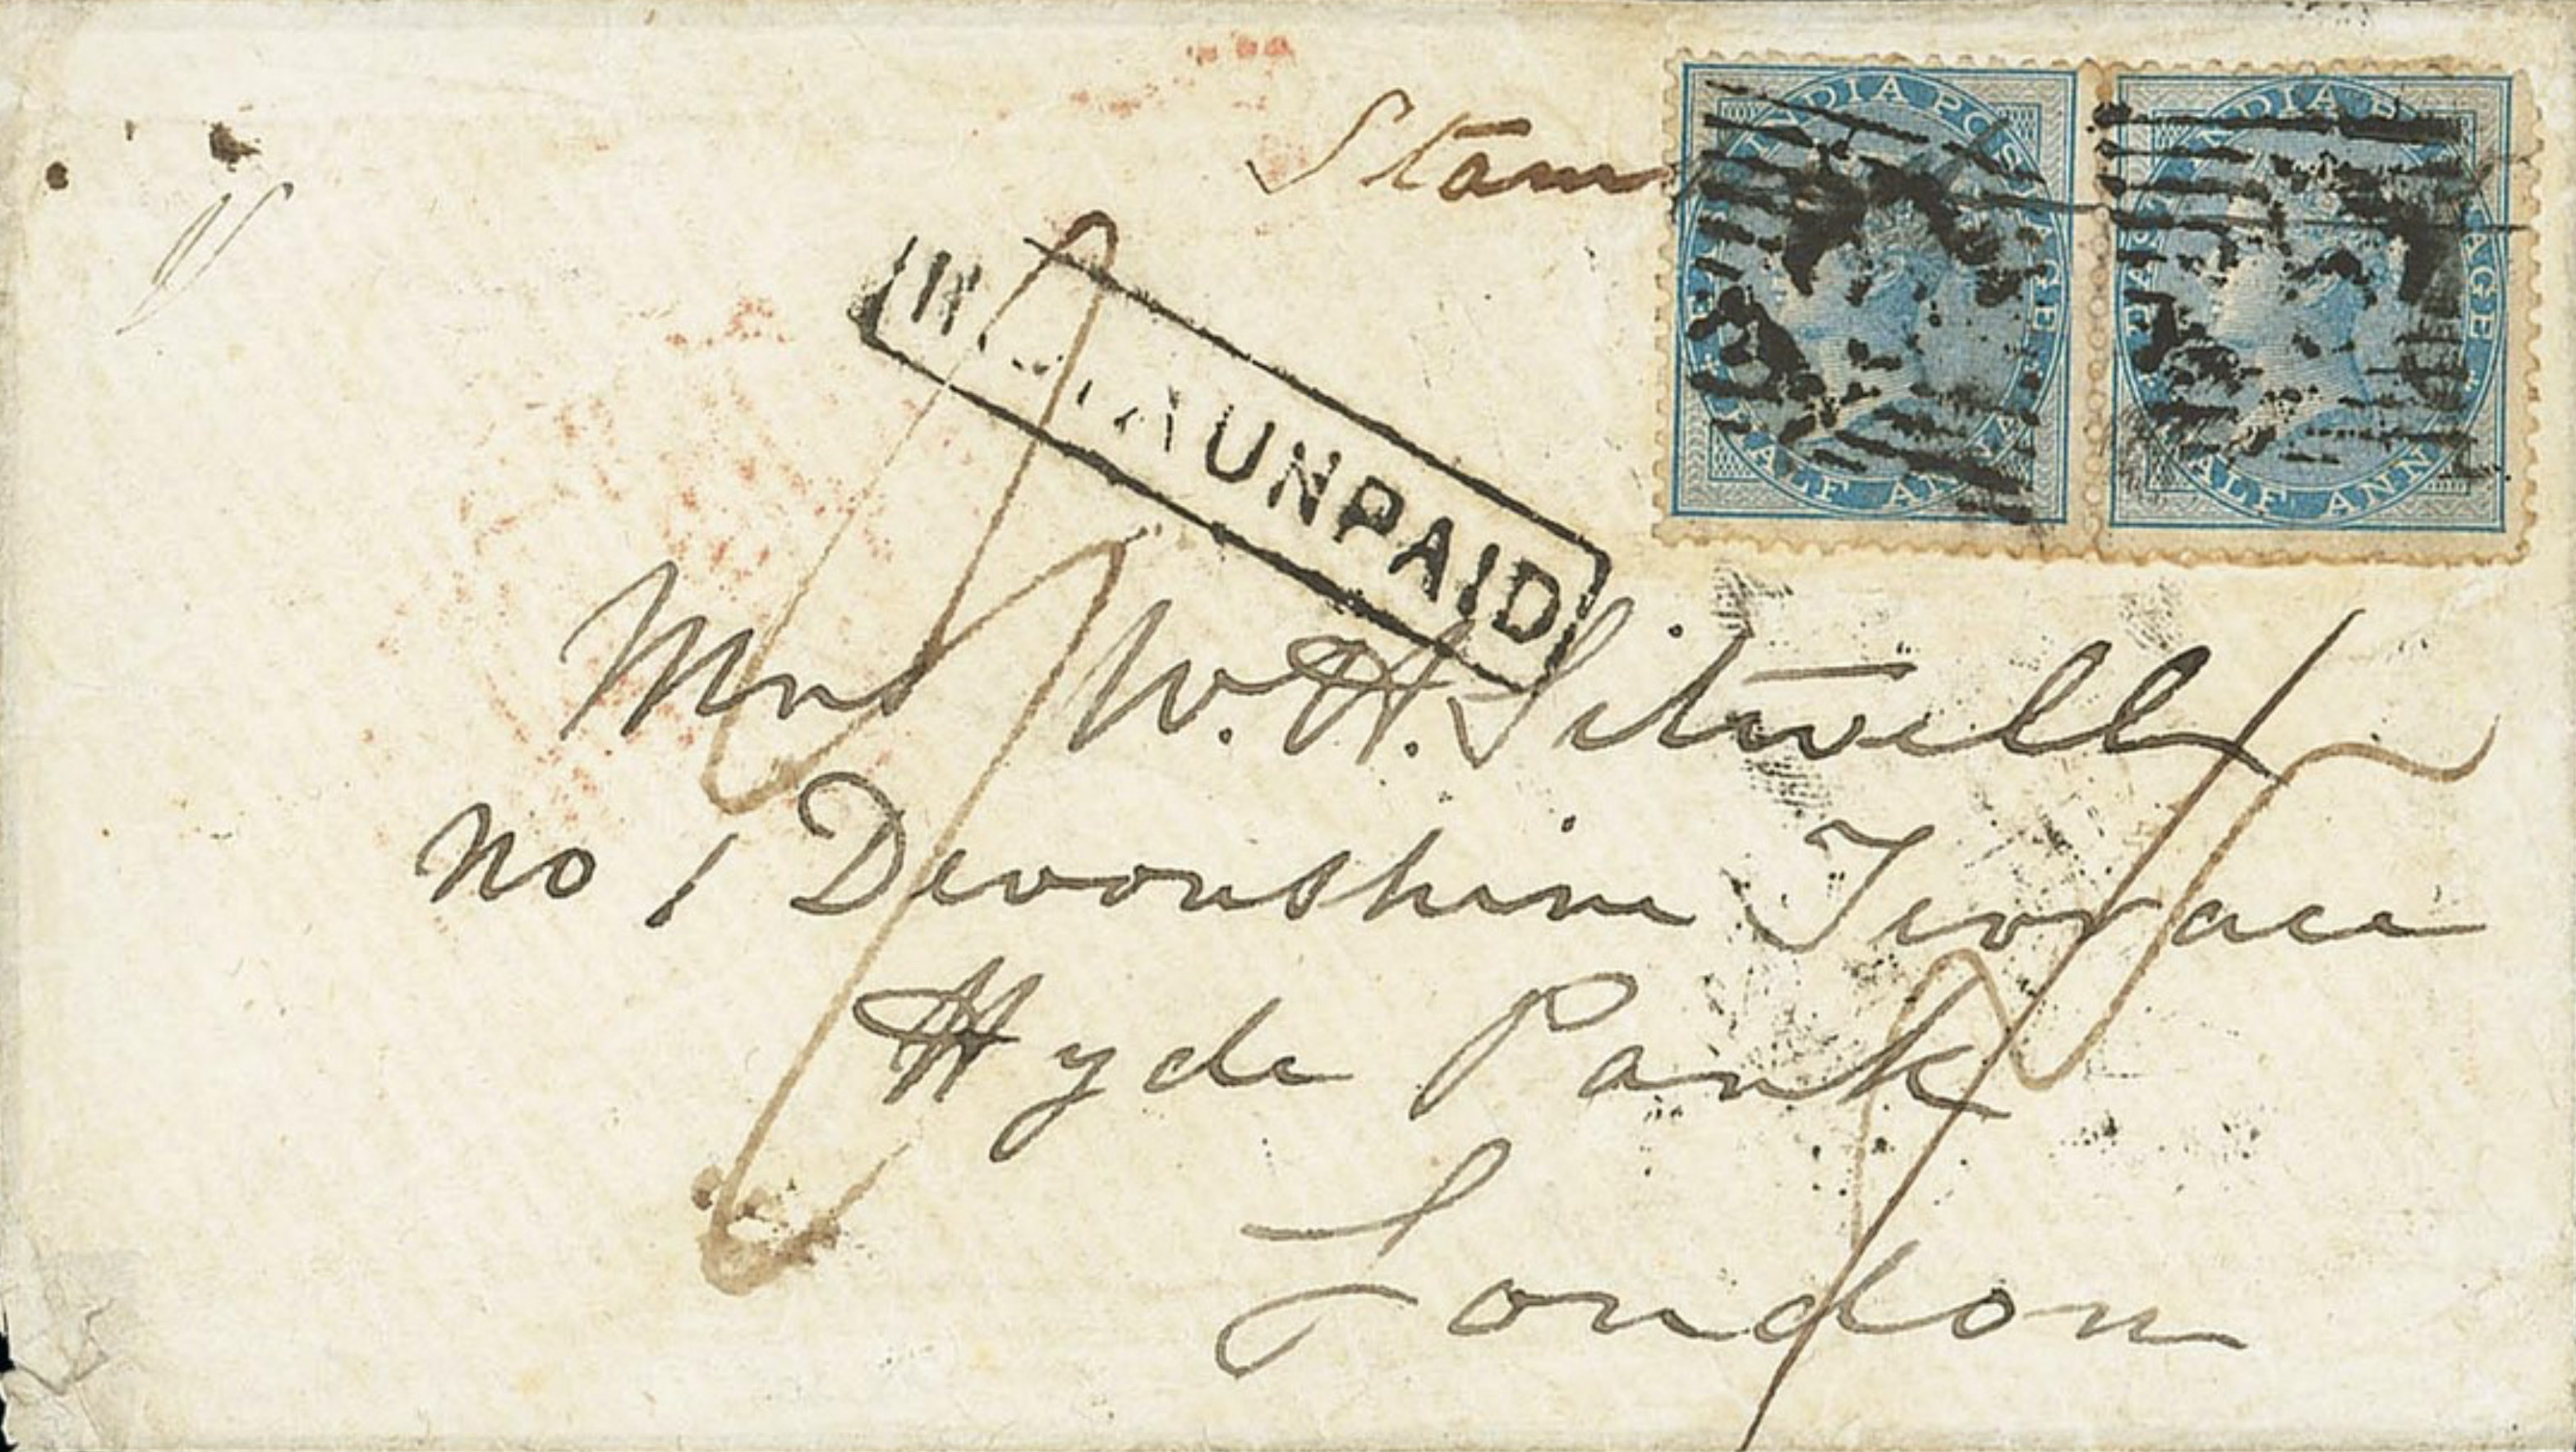 Stam
INDIA POSTAGE INDIA POSTAGE
HALF ANNA HALF ANNA
INDIA UNPAID
Mrs W. H. Sitwell
No 1 Devonshire Terrace
Hyde Park
London